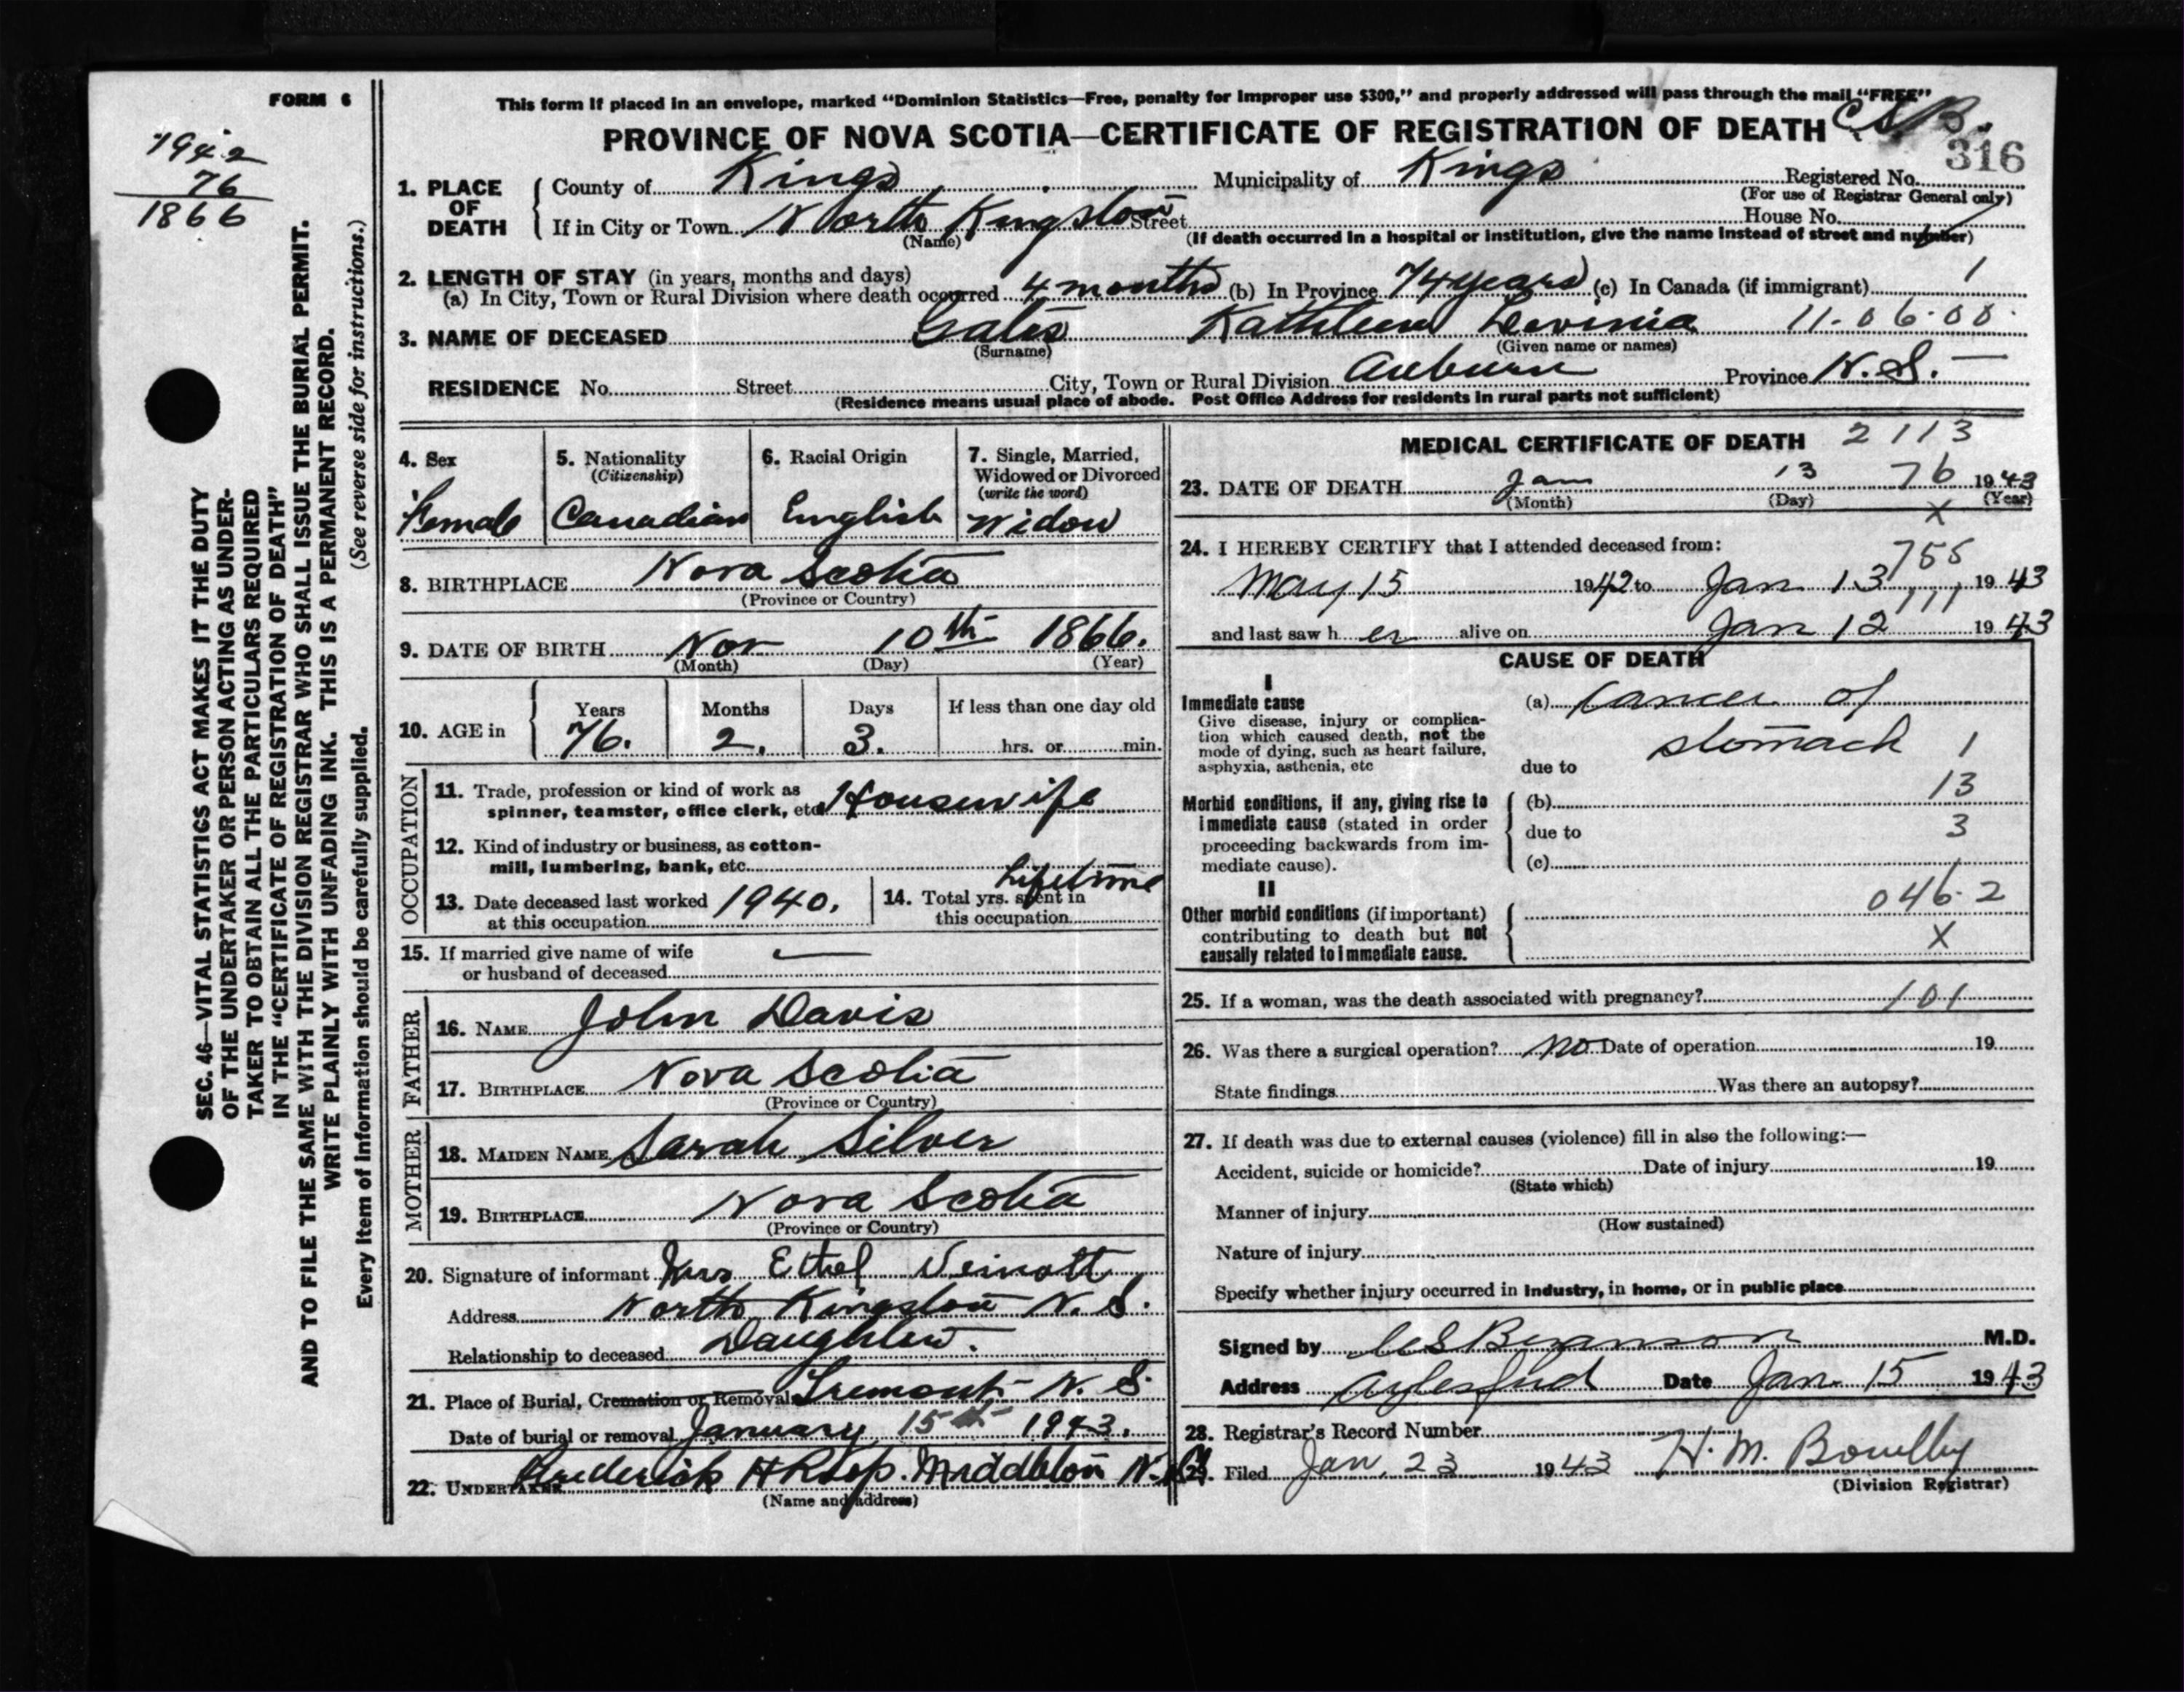 FORM 6
This form if placed in an envelope, marked “Dominion Statistics—Free, penalty for improper use $300,” and properly addressed will pass through the mail “FREE”
PROVINCE OF NOVA SCOTIA—CERTIFICATE OF REGISTRATION OF DEATH C.S.B.
316
1942
76
1866
1. PLACE OF DEATH
County of Kings Municipality of Kings Registered No.
(For use of Registrar General only)
If in City or Town North Kingston Street House No.
(Name) (If death occurred in a hospital or institution, give the name instead of street and number)
2. LENGTH OF STAY (in years, months and days)
(a) In City, Town or Rural Division where death occurred 4 months (b) In Province 74 years (c) In Canada (if immigrant) 1
3. NAME OF DECEASED Gates Kathleen Levinia 11-06-00
(Surname) (Given name or names)
RESIDENCE No. Street City, Town or Rural Division Auburn Province N.S.
(Residence means usual place of abode. Post Office Address for residents in rural parts not sufficient)
4. Sex
Female
5. Nationality
(Citizenship)
Canadian
6. Racial Origin
English
7. Single, Married,
Widowed or Divorced
(write the word)
Widow
8. BIRTHPLACE Nova Scotia
(Province or Country)
9. DATE OF BIRTH Nov 10th 1866.
(Month) (Day) (Year)
10. AGE in
Years Months Days If less than one day old
76. 2. 3. hrs. or min.
OCCUPATION
11. Trade, profession or kind of work as
spinner, teamster, office clerk, etc. Housewife
12. Kind of industry or business, as cotton-
mill, lumbering, bank, etc.
13. Date deceased last worked 1940.
at this occupation
14. Total yrs. spent in Lifetime
this occupation
15. If married give name of wife
or husband of deceased —
FATHER
16. NAME John Davis
17. BIRTHPLACE Nova Scotia
(Province or Country)
MOTHER
18. MAIDEN NAME Sarah Silver
19. BIRTHPLACE Nova Scotia
(Province or Country)
20. Signature of informant Mrs Ethel Veinott
Address North Kingston N.S.
Relationship to deceased Daughter.
21. Place of Burial, Cremation or Removal Tremont N.S.
Date of burial or removal January 15th 1943.
22. UNDERTAKER Frederick Middleton N.S.
(Name and address)
MEDICAL CERTIFICATE OF DEATH 2113
23. DATE OF DEATH Jan 13 76 1943
(Month) (Day) (Year)
X
24. I HEREBY CERTIFY that I attended deceased from:
755
May 15 1942 to Jan 13 1943
111
and last saw her alive on Jan 12 1943
CAUSE OF DEATH
I
Immediate cause
Give disease, injury or complica-
tion which caused death, not the
mode of dying, such as heart failure,
asphyxia, asthenia, etc
(a) Cancer of
stomach 1
due to
Morbid conditions, if any, giving rise to
immediate cause (stated in order
proceeding backwards from im-
mediate cause).
(b) 13
due to 3
(c)
II
Other morbid conditions (if important)
contributing to death but not
causally related to immediate cause.
046.2
X
25. If a woman, was the death associated with pregnancy? 101
26. Was there a surgical operation? no Date of operation 19
State findings Was there an autopsy?
27. If death was due to external causes (violence) fill in also the following:—
Accident, suicide or homicide? Date of injury 19
(State which)
Manner of injury
(How sustained)
Nature of injury
Specify whether injury occurred in industry, in home, or in public place
Signed by M.D.
Address Aylesford Date Jan 15 1943
28. Registrar's Record Number
29. Filed Jan. 23 1943 H. M.
(Division Registrar)
SEC. 46—VITAL STATISTICS ACT MAKES IT THE DUTY
OF THE UNDERTAKER OR PERSON ACTING AS UNDER-
TAKER TO OBTAIN ALL THE PARTICULARS REQUIRED
IN THE “CERTIFICATE OF REGISTRATION OF DEATH”
AND TO FILE THE SAME WITH THE DIVISION REGISTRAR WHO SHALL ISSUE THE BURIAL PERMIT.
WRITE PLAINLY WITH UNFADING INK. THIS IS A PERMANENT RECORD.
Every item of information should be carefully supplied. (See reverse side for instructions.)